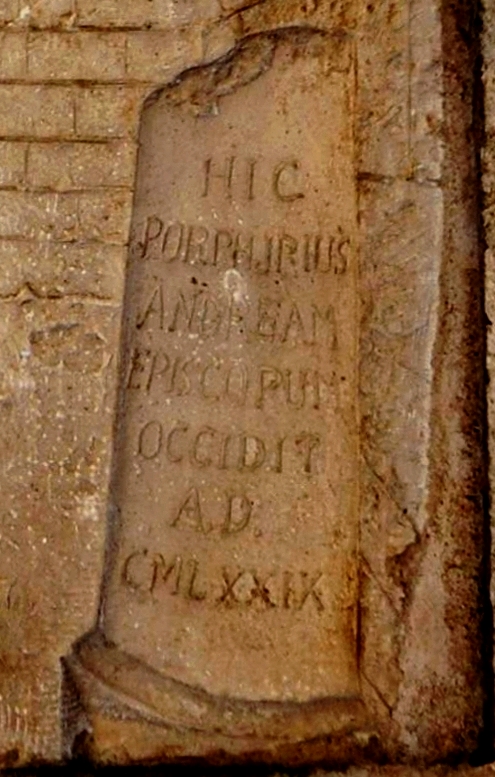 HIC
PORPHJRIUS
ANDREAM
EPISCOPUM
OCCIDIT
A.D.
CMLXXIX